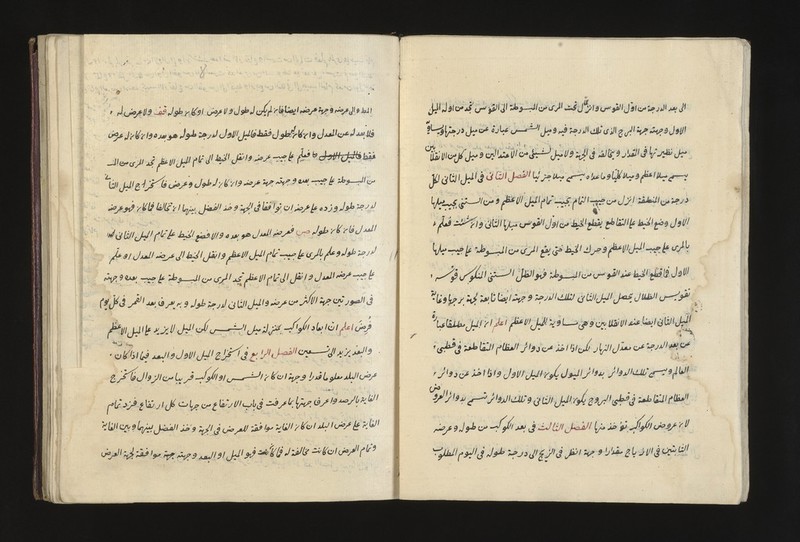 الى بعد الدرجة من اول القوس وانزل تحت المرى من المبسوطة الى القوس تجد من اوله الميل
الاول وجهته جهة البرج الذى تلك الدرجة فيه وميل الشمس عبارة عن ميل درجتها
ميل نظيرتها فى المقدار ويخالفه فى الجهة ولا ميل لشىء من الاعتدالين وميل كل من الانقلابين
يسمى ميلا اعظم وميلا كليا وما عداه يسمى ميلا جزئيا الفصل الثانى فى الميل الثانى لكل
درجة من المنطقة انزل من جيب تمام الميل الاعظم ومن الستينى بجيب ميلها
الاول وضع الخيط على التقاطع يقطع الخيط من اول القوس ميلها الثانى وان شئت فعلم
بالمرى على جيب الميل الاعظم وحرك الخيط حتى يقع المرى من المبسوطة على جيب ميلها
الاول فما قطع الخيط عند القوس من المبسوطة فهو الظل الستينى المنكوس قوسه
بقوس الظلال يحصل الميل الثانى لتلك الدرجة وجهته ايضا تابعة لجهة برجها وغاية
الميل الثانى ايضا عند الانقلابين وهى مساوية الميل الاعظم اعلم ان الميل مطلقا عبارة
عن بعد الدرجة عن معدل النهار لكن اذا اخذ من دوائر العظام المتقاطعة فى قطبى
العالم ويسمى تلك الدوائر بدوائر الميول يكون الميل الاول واذا اخذ عن دوائر
العظام المتقاطعة فى قطبى البروج يكون الميل الثانى وتلك الدوائر تسمى بدوائر العروض
لان عروض الكواكب تؤخذ منها الفصل الثالث فى بعد الكوكب من طوله وعرضه
الثابتين فى الازياج مقدارا وجهة انظر فى الزيج الى درجة طوله فى اليوم المطلوب
الخط والى عرضه وجهة عرضه ايضا فان لم يكن له طول ولا عرض او كان طوله قف ولا عرض له
فلا بعد له عن المعدل وان كان له طول فقط فالميل الاول لدرجة طوله هو بعده وان كان له عرض
فقط فعلم على جيب عرضه وانقل الخيط الى تمام الميل الاعظم تجد المرى من
المبسوطة على جيب بعده وجهته جهة عرضه وان كان له طول وعرض فاستخرج الميل الثانى
لدرجة طوله وزده على عرضه ان توافقا فى الجهة وخذ الفضل بينهما ان تخالفا فما كان فهو عرضه
المعدل فان كان طوله ص فعرضه المعدل هو بعده والا فضع الخيط على تمام الميل الثانى
لدرجة طوله وعلم بالمرى على جيب تمام الميل الاعظم وانقل الخيط الى عرضه المعدل او علم
على جيب عرضه المعدل وانقل الى تمام الاعظم تجد المرى من المبسوطة على جيب بعده وجهته
فى الصورتين جهة الاكثر من عرضه والميل الثانى لدرجة طوله وبه يعرف بعد القمر فى كل يوم
فرض اعلم ان ابعاد الكواكب كمنزلة ميل الشمس لكن الميل لا يزيد على الميل الاعظم
والبعد يزيد الى تسعين الفصل الرابع فى استخراج الميل الاول والبعد فيما اذا كان
عرض البلد معلوما قدرا وجهة ان كان الشمس او الكوكب قريبا من الزوال فاستخرج
الغاية بالرصد واعرف جهتها بما عرفت فى باب الارتفاع من جهات كل ارتفاع فزد تمام
الغاية على عرض البلد ان كان الغاية موافقة للعرض فى الجهة وخذ الفضل بينهما وبين الغاية
وتمام العرض ان كانت مخالفة له فما بلغت فهو الميل او البعد وجهته جهة موافقة لجهة العرض